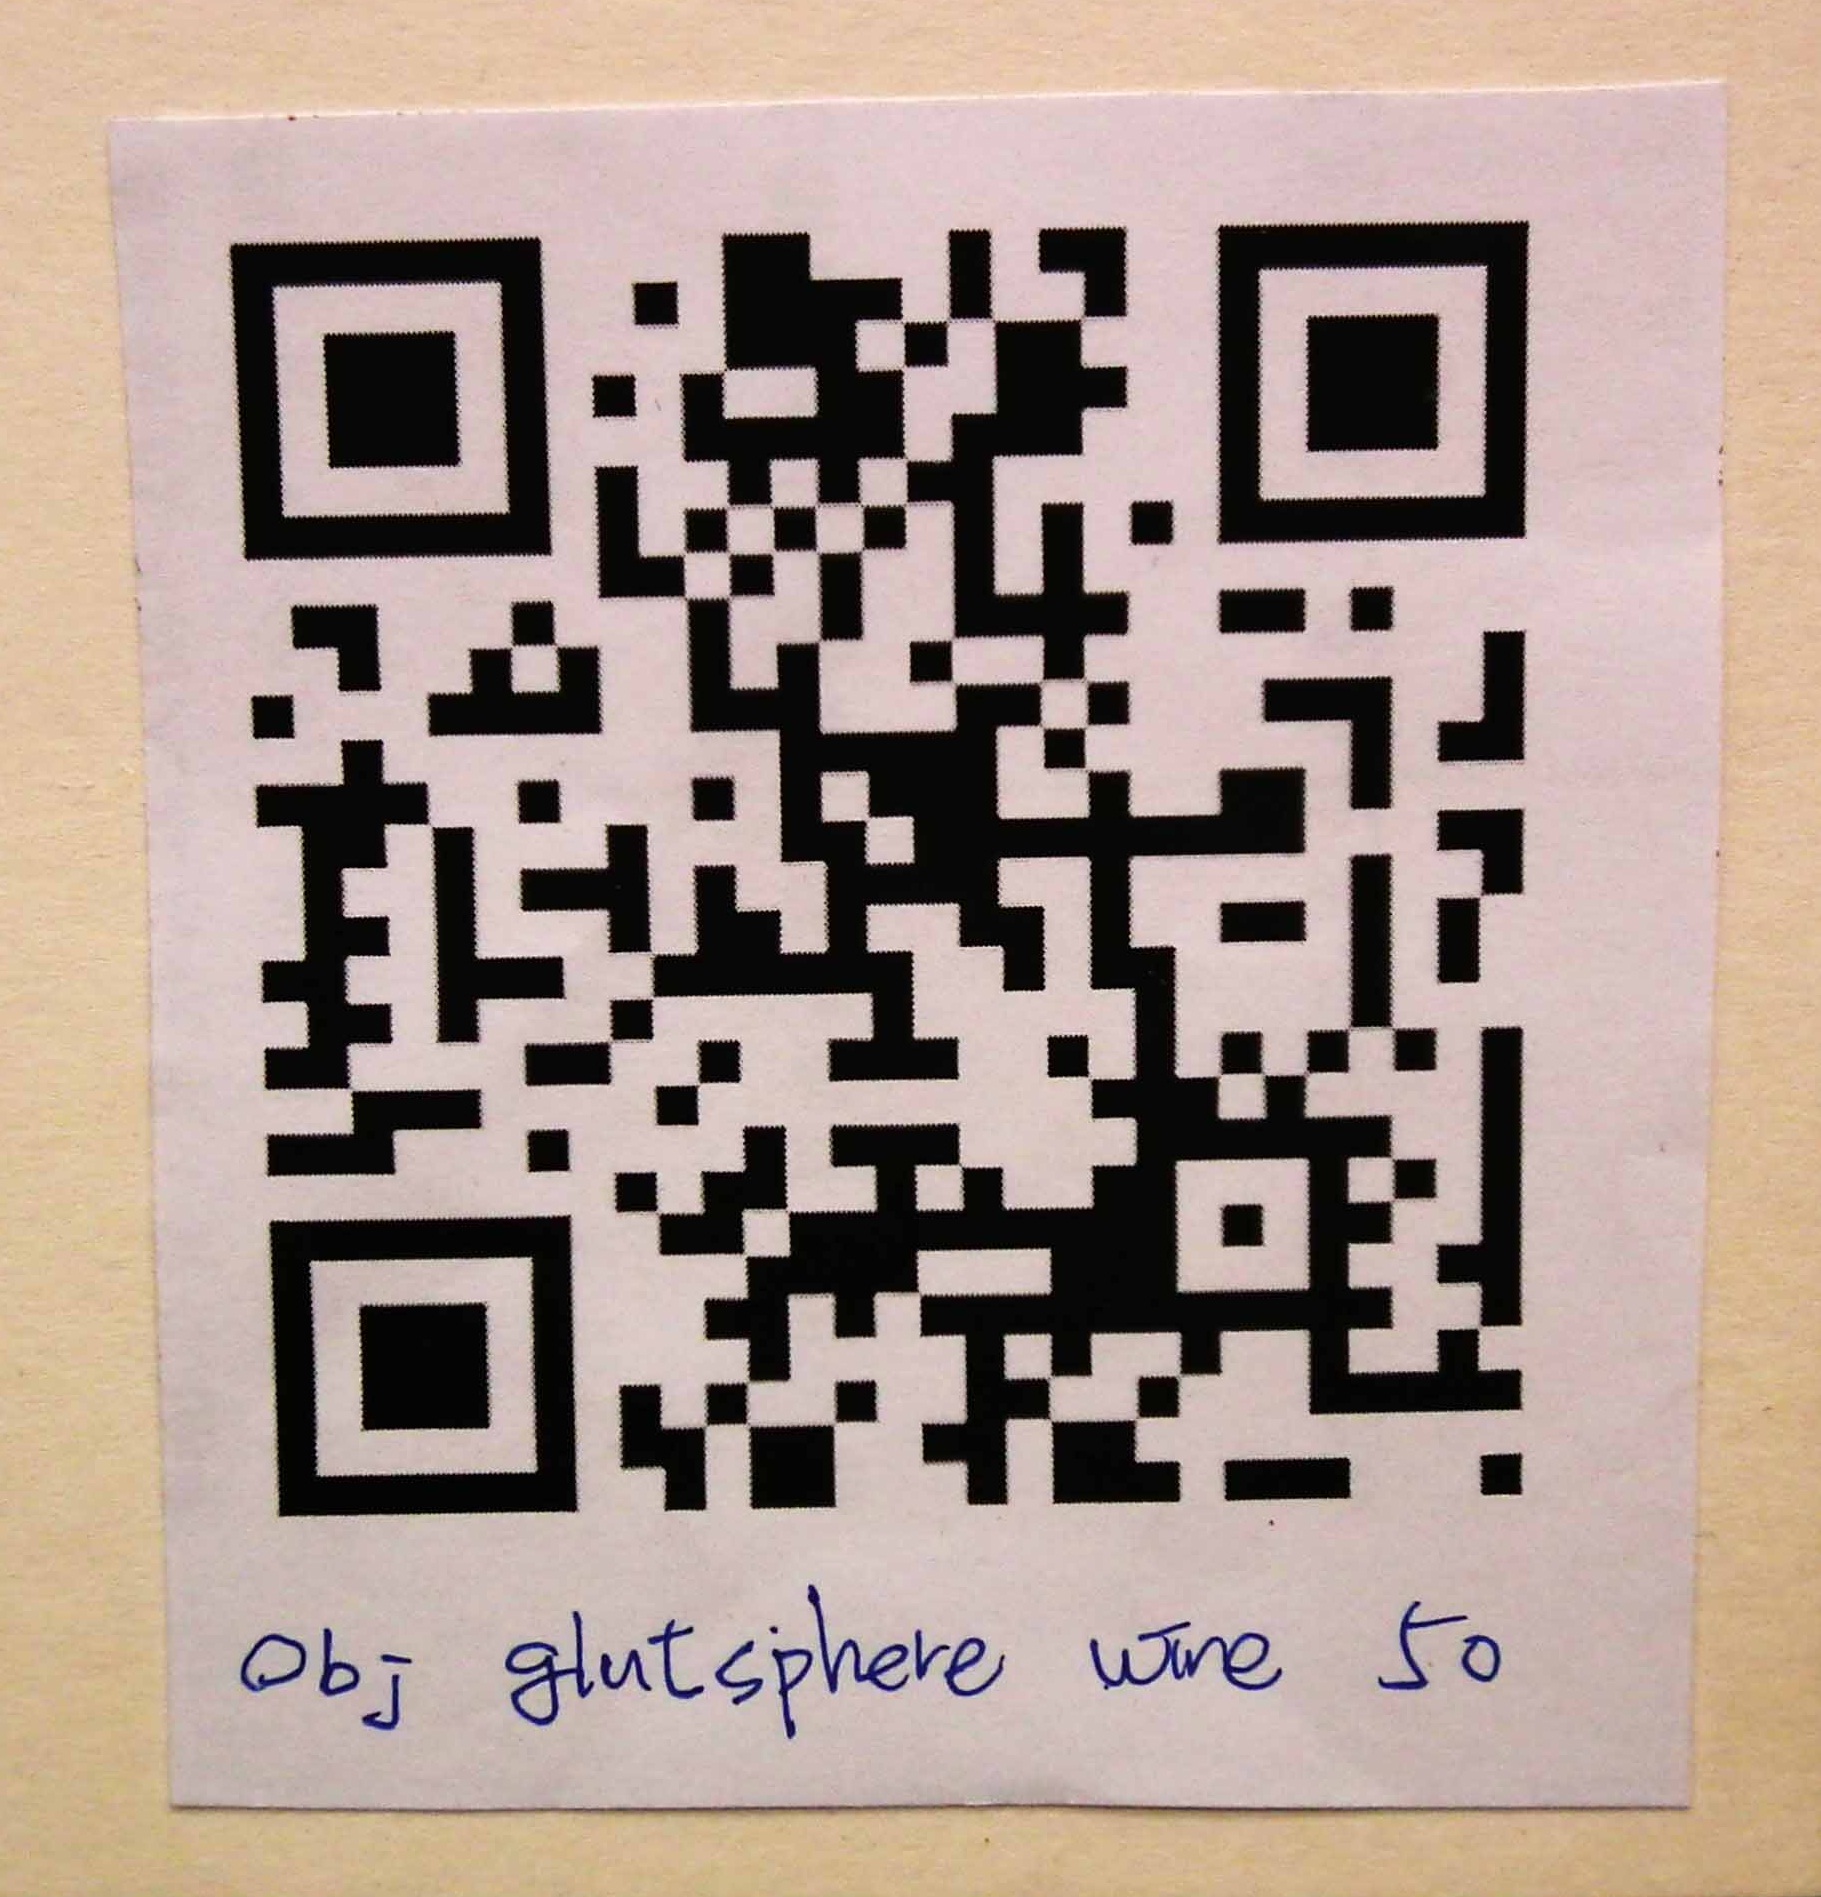 Obj glutsphere wire 50